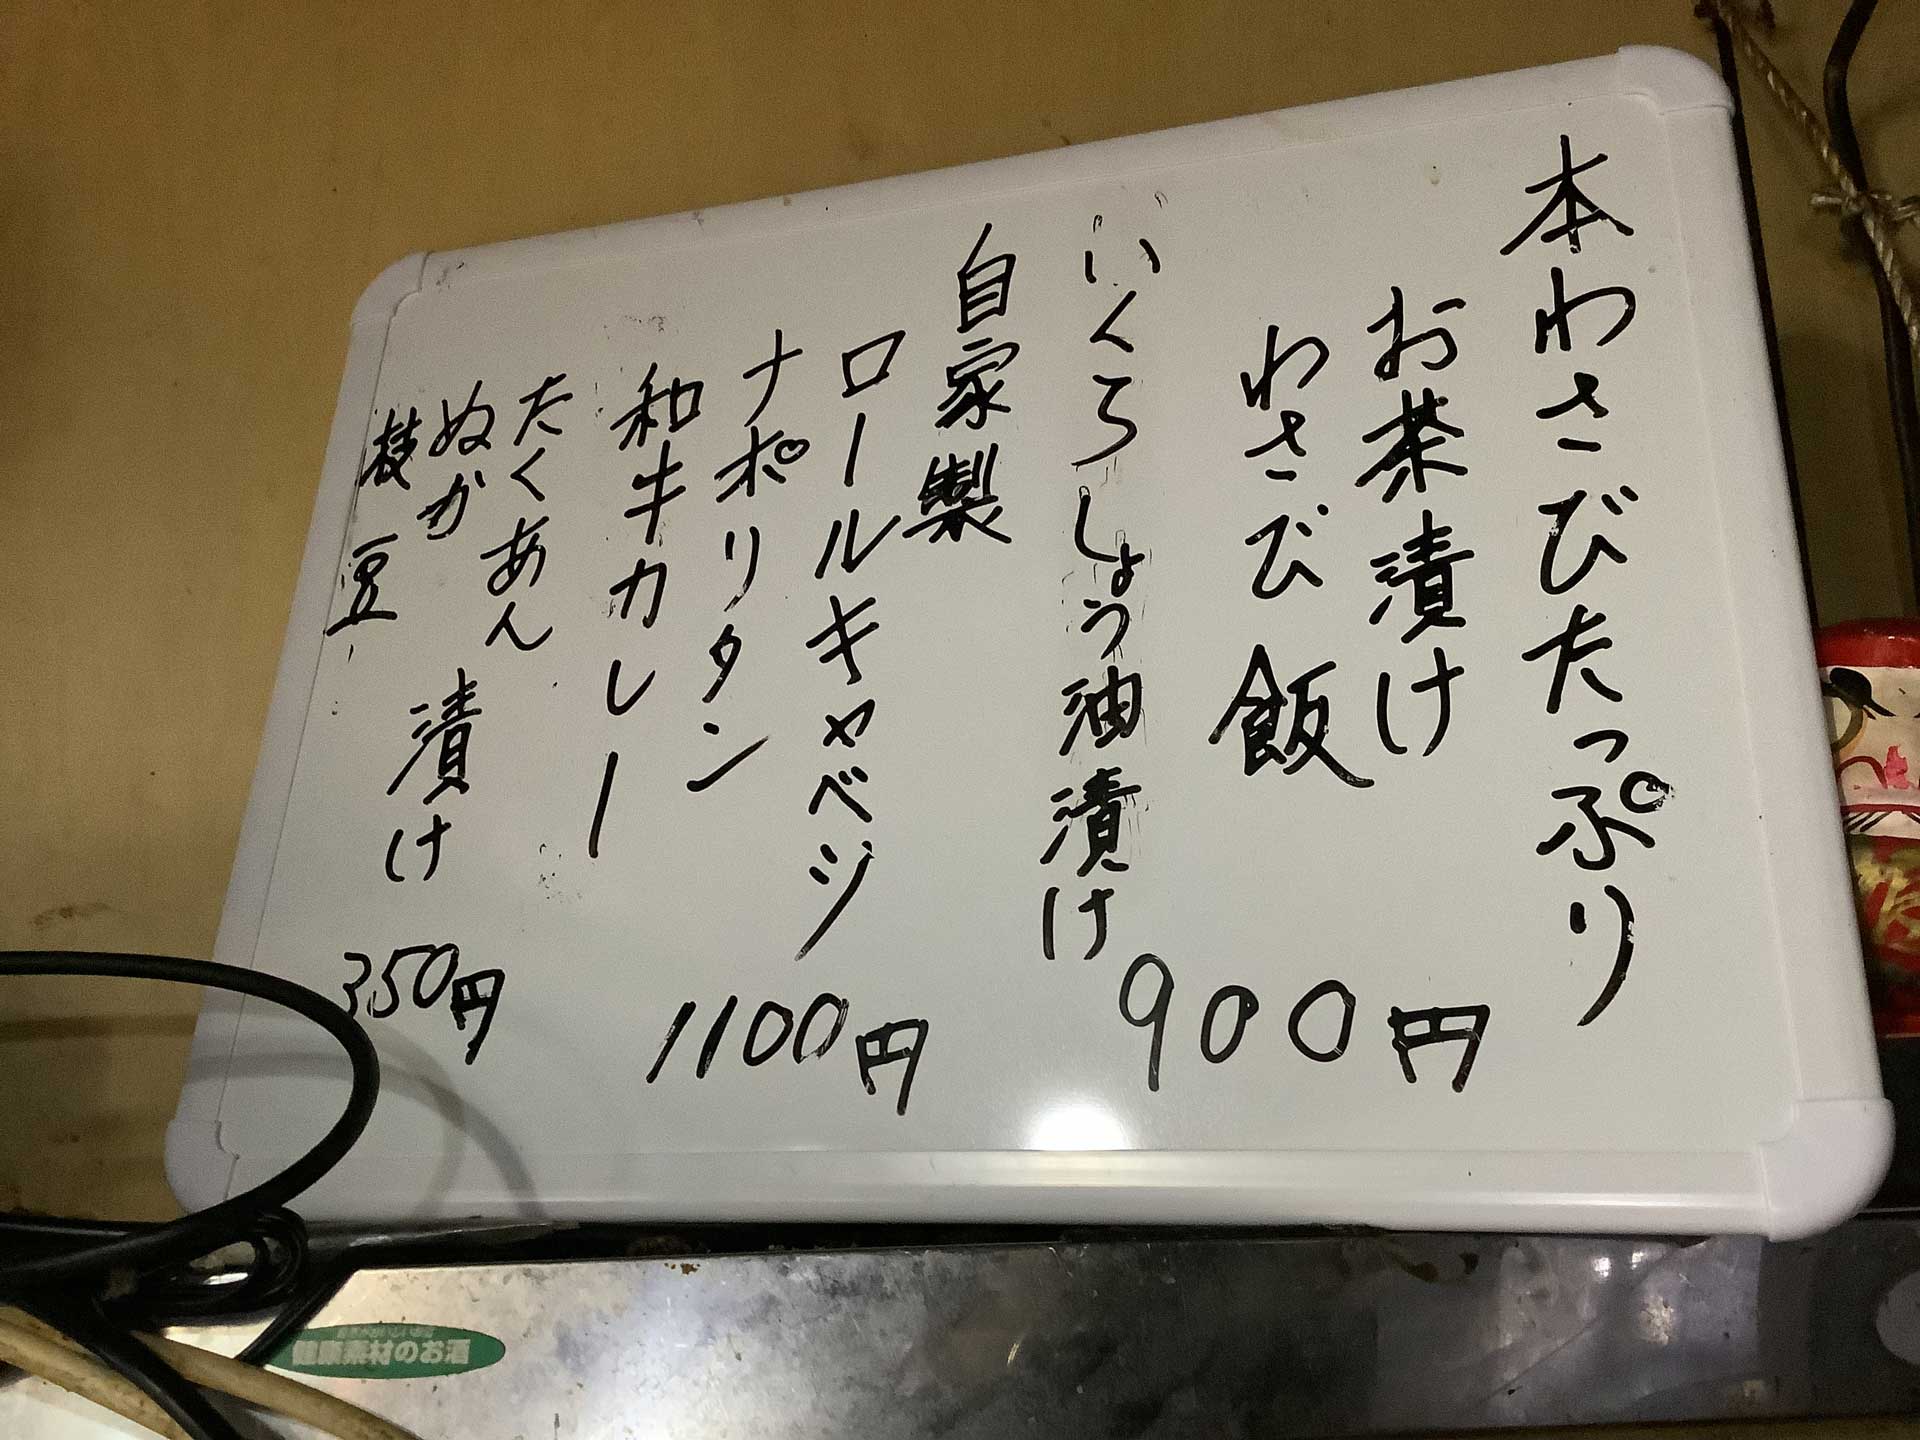 本わさびたっぷり
お茶漬け
わさび飯
いくらしょう油漬け
900円
自家製
ロールキャベジ
ナポリタン
和牛カレー
1100円
たくあん
ぬか漬け
枝豆
350円
健康素材のお酒